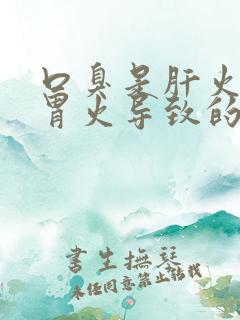 口臭是肝火
胃火导致的
書生撫琴
未经同意禁止转载